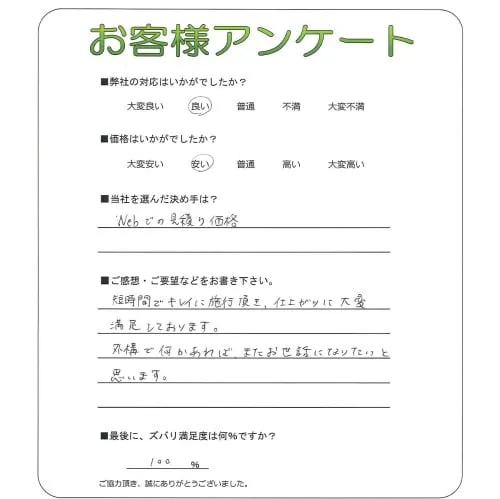 お客様アンケート
■弊社の対応はいかがでしたか？
大変良い 良い 普通 不満 大変不満
■価格はいかがでしたか？
大変安い 安い 普通 高い 大変高い
■当社を選んだ決め手は？
Webでの見積り価格
■ご感想・ご要望などをお書き下さい。
短時間でキレイに施行頂き、仕上がりに大変
満足しております。
外構で何かあれば、またお世話になりたいと
思います。
■最後に、ズバリ満足度は何%ですか？
100 %
ご協力頂き、誠にありがとうございました。